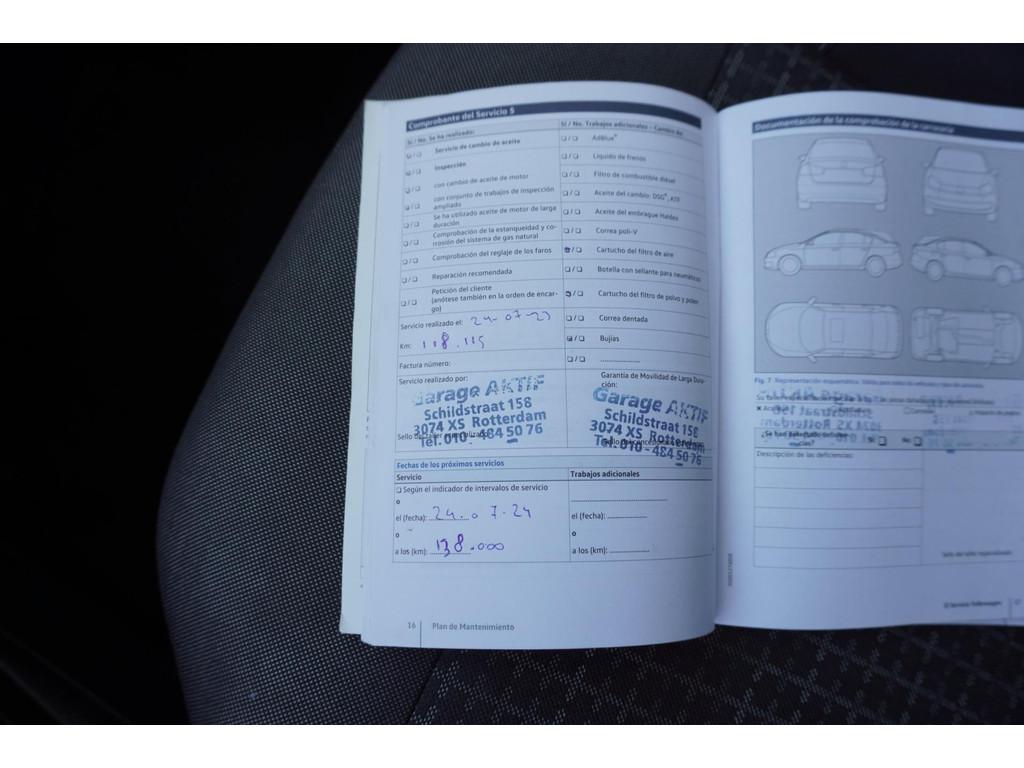 Comprobante del Servicio 5
Sí / No. Se ha realizado:
Servicio de cambio de aceite
Inspección
con cambio de aceite de motor
con conjunto de trabajos de inspección
ampliado
Se ha utilizado aceite de motor de larga
duración
Comprobación de la estanqueidad y co-
rrosión del sistema de gas natural
Comprobación del reglaje de los faros
Reparación recomendada
Petición del cliente
(anótese también en la orden de encar-
go)
Servicio realizado el: 24-07-23
Km: 118.115
Factura número:
Servicio realizado por:
Garage AKTIF
Schildstraat 158
3074 XS Rotterdam
Tel. 010 - 484 50 76
Sí / No. Trabajos adicionales – Cambio de:
AdBlue®
Líquido de frenos
Filtro de combustible diésel
Aceite del cambio: DSG®,
Aceite del embrague Haldex
Correa poli-V
Cartucho del filtro de aire
Botella con sellante para neumáticos
Cartucho del filtro de polvo y polen
Correa dentada
Bujías
Garantía de Movilidad de Larga Dura-
ción:
Garage AKTIF
Schildstraat 158
3074 XS Rotterdam
Tel. 010 - 484 50 76
Fechas de los próximos servicios
Servicio
Según el indicador de intervalos de servicio
o
el (fecha): 24.07-24
o
a los (km): 138.000
Trabajos adicionales
el (fecha):
o
a los (km):
16 Plan de Mantenimiento
Documentación de la comprobación de la carrocería
Fig. 7 Representación esquemática:
Descripción de las deficiencias: